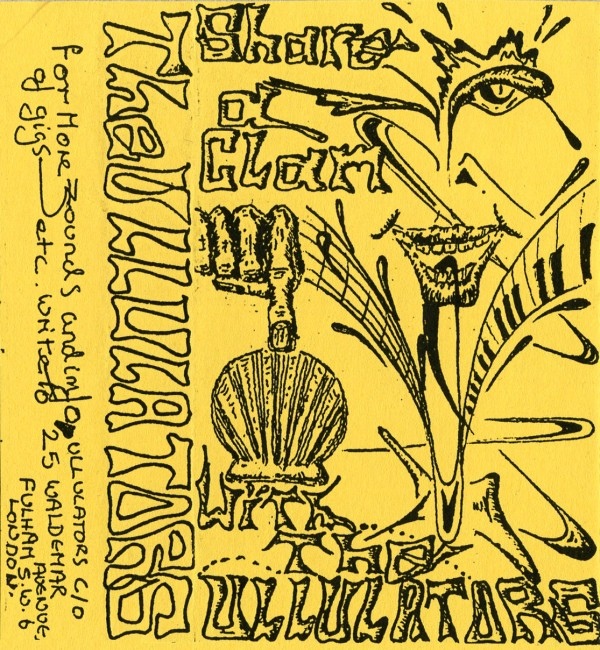 for More zounds and info
of gigs etc. write to ULLULATORS C/O
25 WALDEMAR
AVENUE,
FULHAM S.W.6
LONDON.
The ULLULATORS
Share
a
Clam
With
The
ULLULATORS